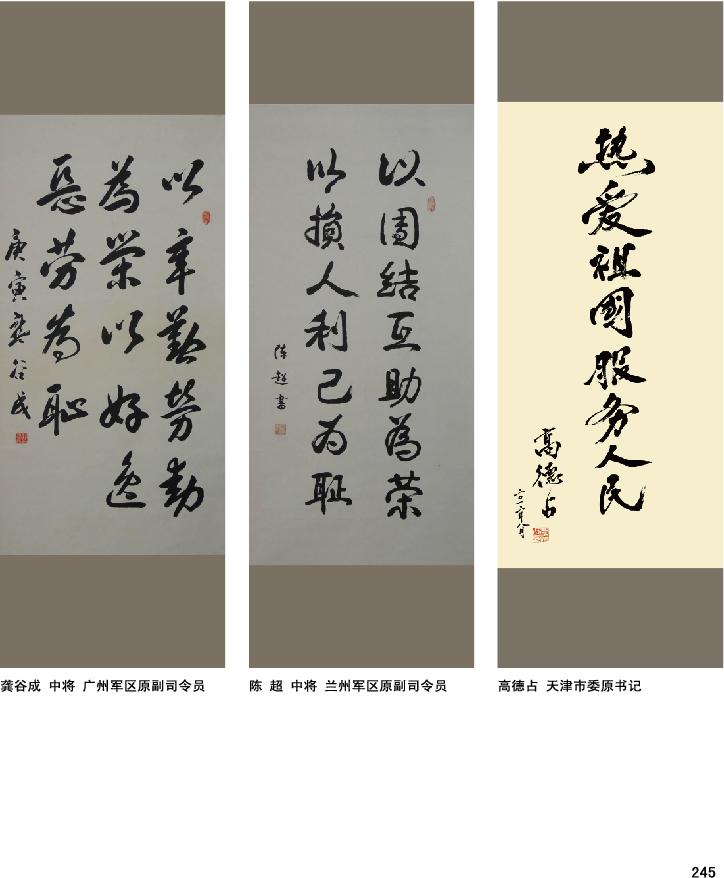 以辛勤劳动
为荣以好逸
恶劳为耻
庚寅龚谷成
以团结互助为荣
以损人利己为耻
陈超书
热爱祖国服务人民
高德占
龚谷成 中将 广州军区原副司令员
陈 超 中将 兰州军区原副司令员
高德占 天津市委原书记
245